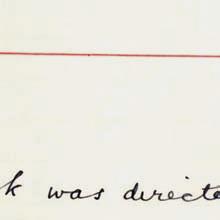 k was directe